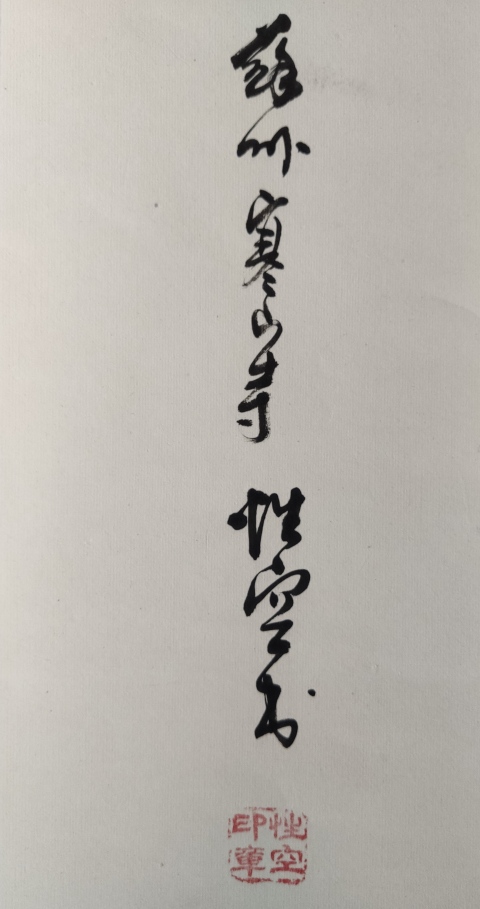 蘇州寒山寺 性空书
性空印章